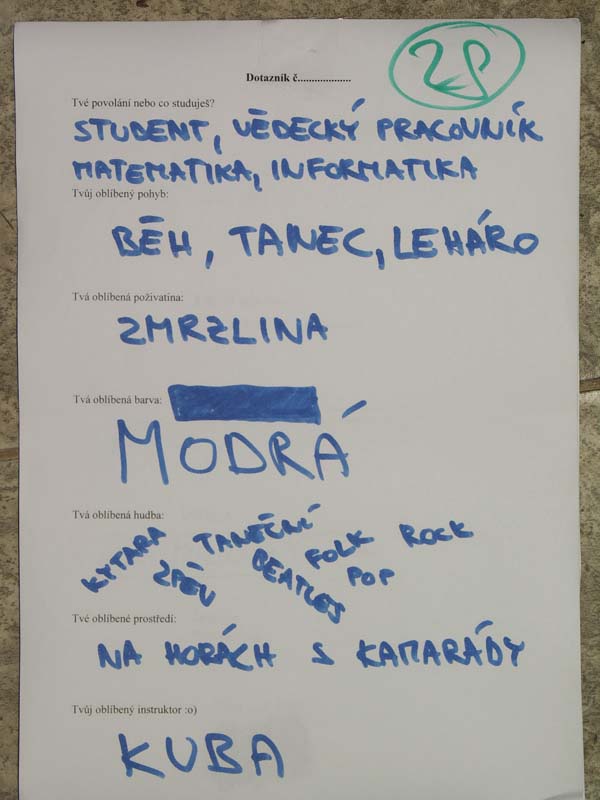 28
Dotazník č...................
Tvé povolání nebo co studuješ?
STUDENT, VĚDECKÝ PRACOVNÍK
MATEMATIKA, INFORMATIKA
Tvůj oblíbený pohyb:
BĚH, TANEC, LEHÁRO
Tvá oblíbená poživatina:
ZMRZLINA
Tvá oblíbená barva:
MODRÁ
Tvá oblíbená hudba:
KYTARA ZPĚV TANEČNÍ BEATLES FOLK POP ROCK
Tvé oblíbené prostředí:
NA HORÁCH S KAMARÁDY
Tvůj oblíbený instruktor :o)
KUBA